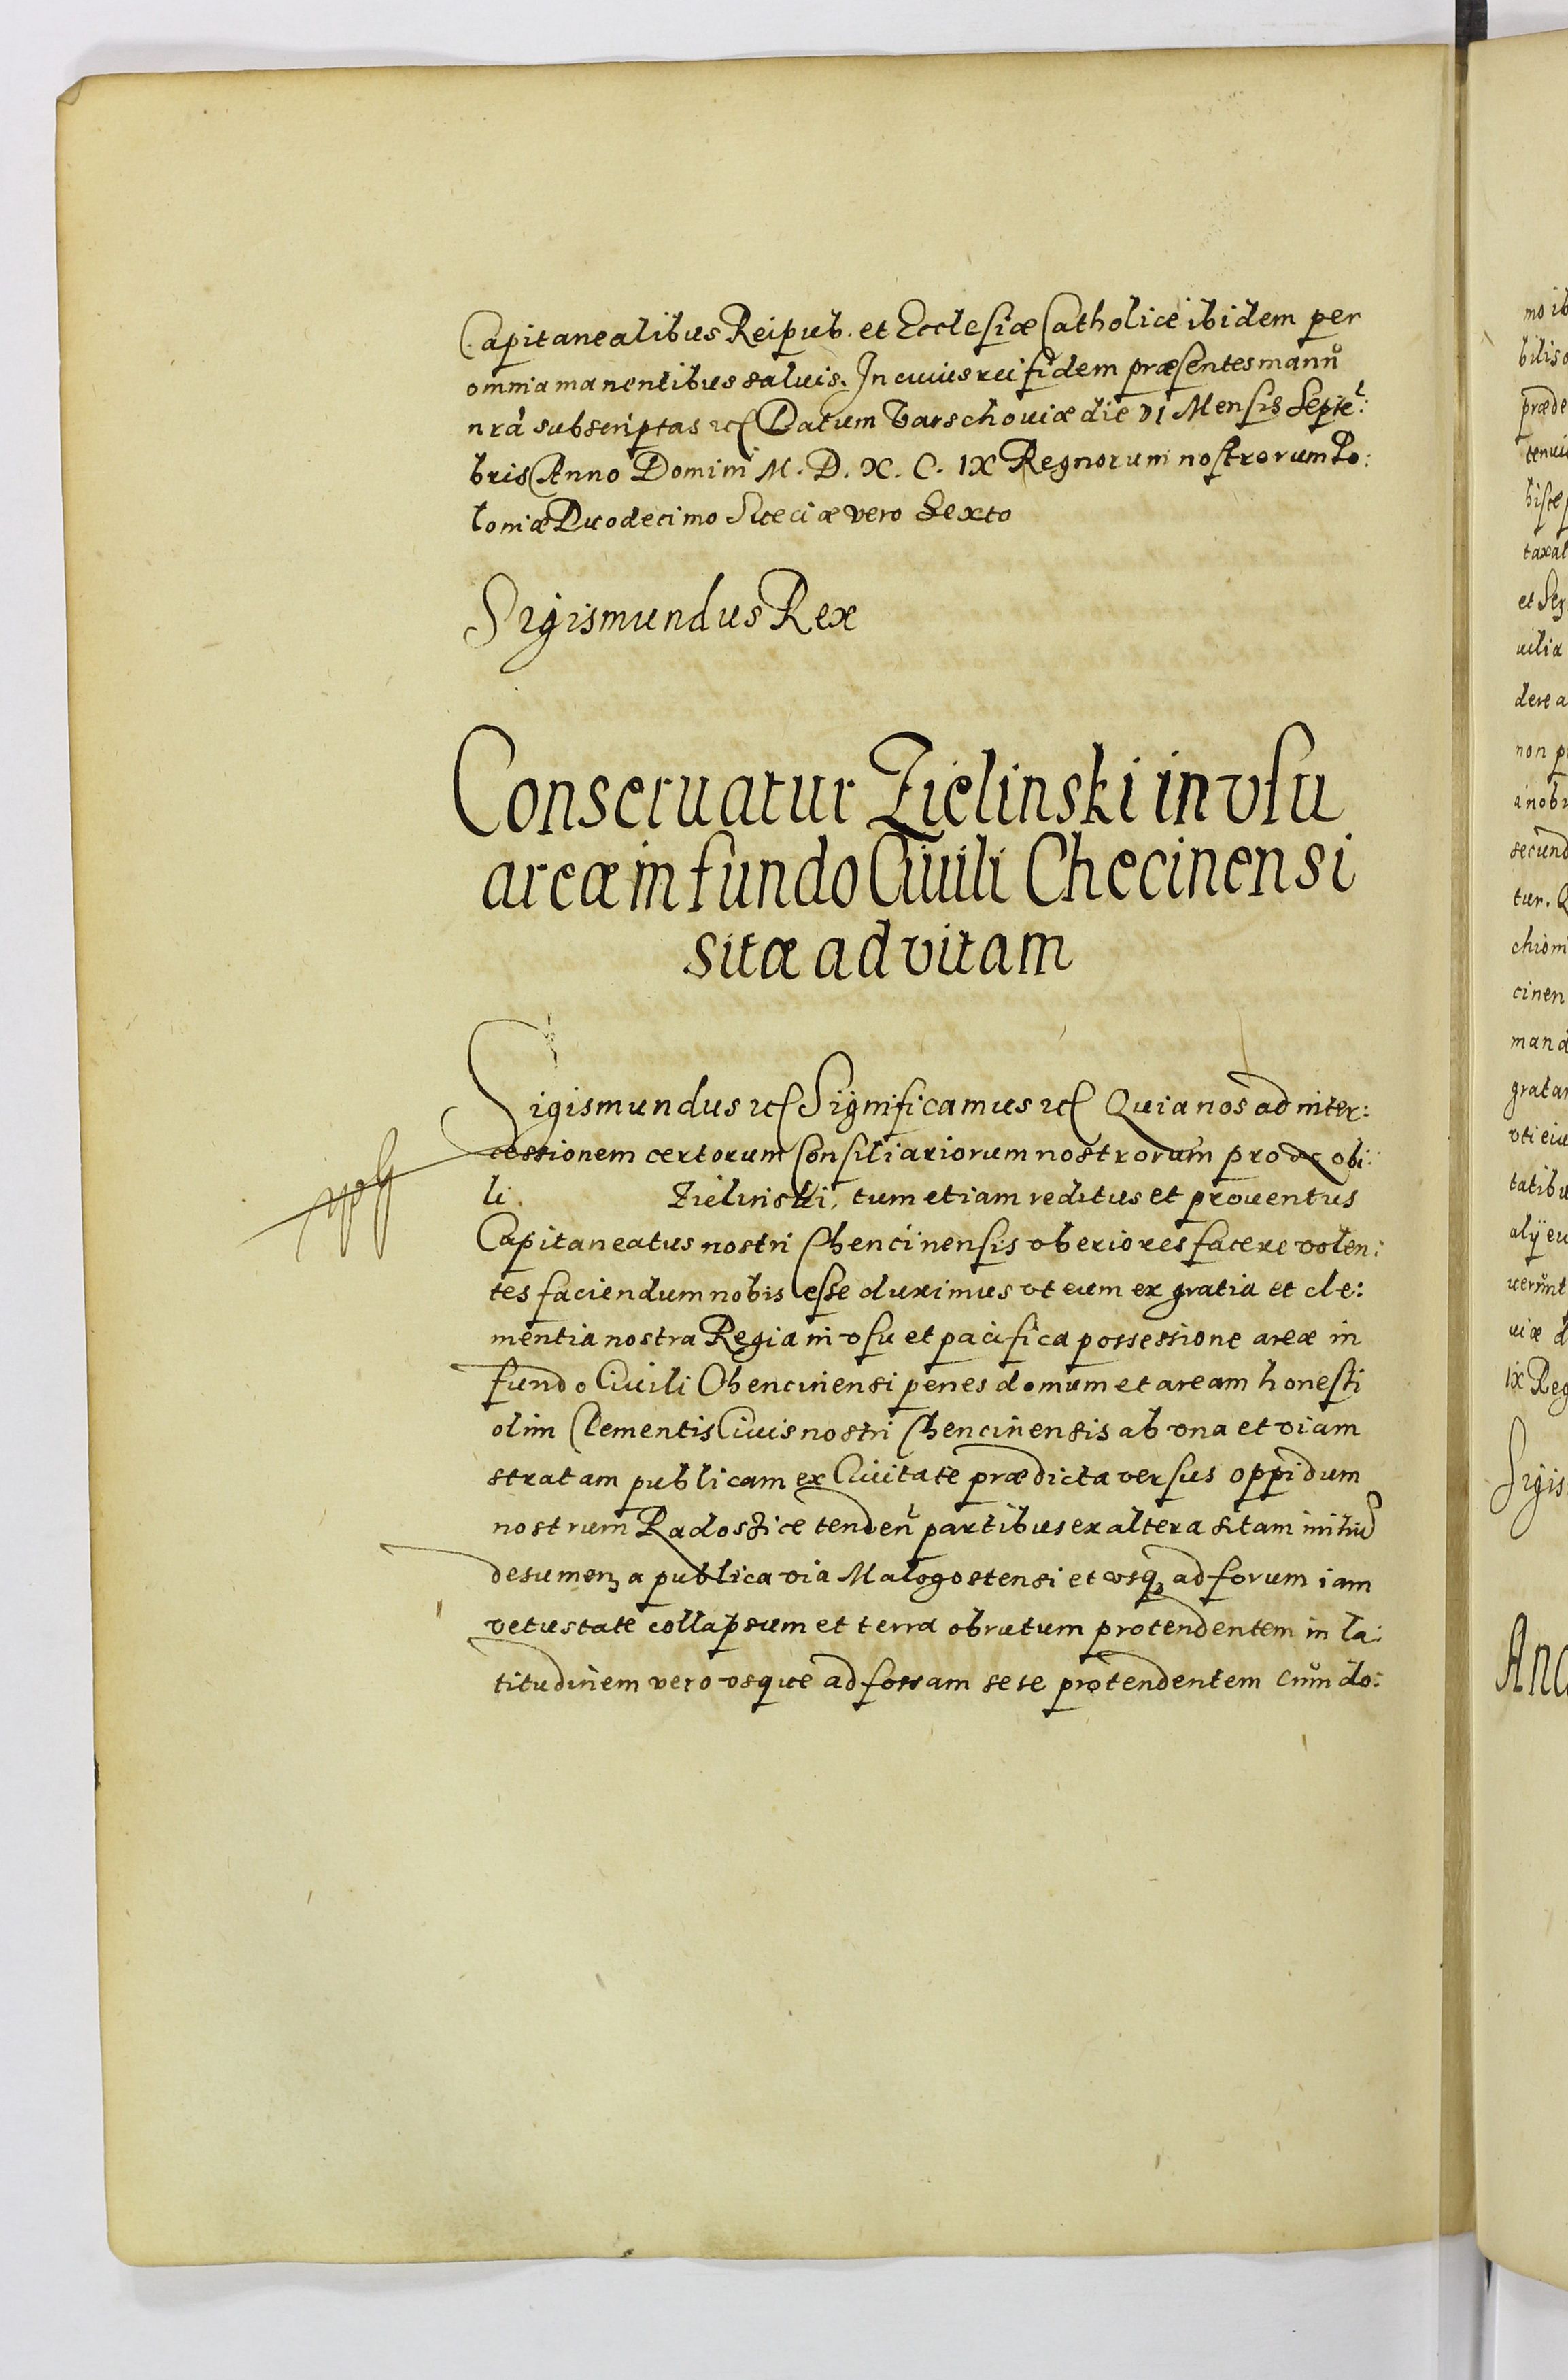 Capitanealibus Reipub. et Ecclesiæ Catholice ibidem per
omnia manentibus saluis. In cuius rei fidem præsentes manū
nrā subscriptas etc Datum Varschouiæ die VI Mensis Septē:
bris Anno Domini M. D. X. C. IX Regnorum nostrorum Po:
loniæ Duodecimo Sueciæ vero Sexto
Sigismundus Rex
Conseruatur Zielinski in vsu
areæ in fundo Ciuili Checinensi
sitæ ad vitam
Sigismundus etc Significamus etc Quia nos ad inter:
cessionem certorum Consiliariorum nostrorum pro obi:
li Zielinski, tum etiam reditus et prouentus
Capitaneatus nostri Chencinensis vberiores facere volen:
tes faciendum nobis esse duximus vt eum ex gratia et cle:
mentia nostra Regia in vsu et pacifica possessione areæ in
fundo Ciuili Chencinensi penes domum et aream honesti
olim Clementis Ciuis nostri Chencinensis ab vna et viam
stratam publicam ex Ciuitate prædicta versus oppidum
nostrum Radoszice tenden partibus ex altera sitam initiū
desumen a publica via Malogostensi et vsq ad forum iam
vetustate collapsum et terra obrutum protendentem in la:
titudinem vero vsque ad fossam sese protendentem cum do:
mo ib
bilis
præde
tenui
taxat
uilia
dere a
non p
a nob
secund
tur. Q
chiom
cinen
mand
gratam
vti eiu
tatibu
alij eu
uiæ d
IX Reg
Sigis